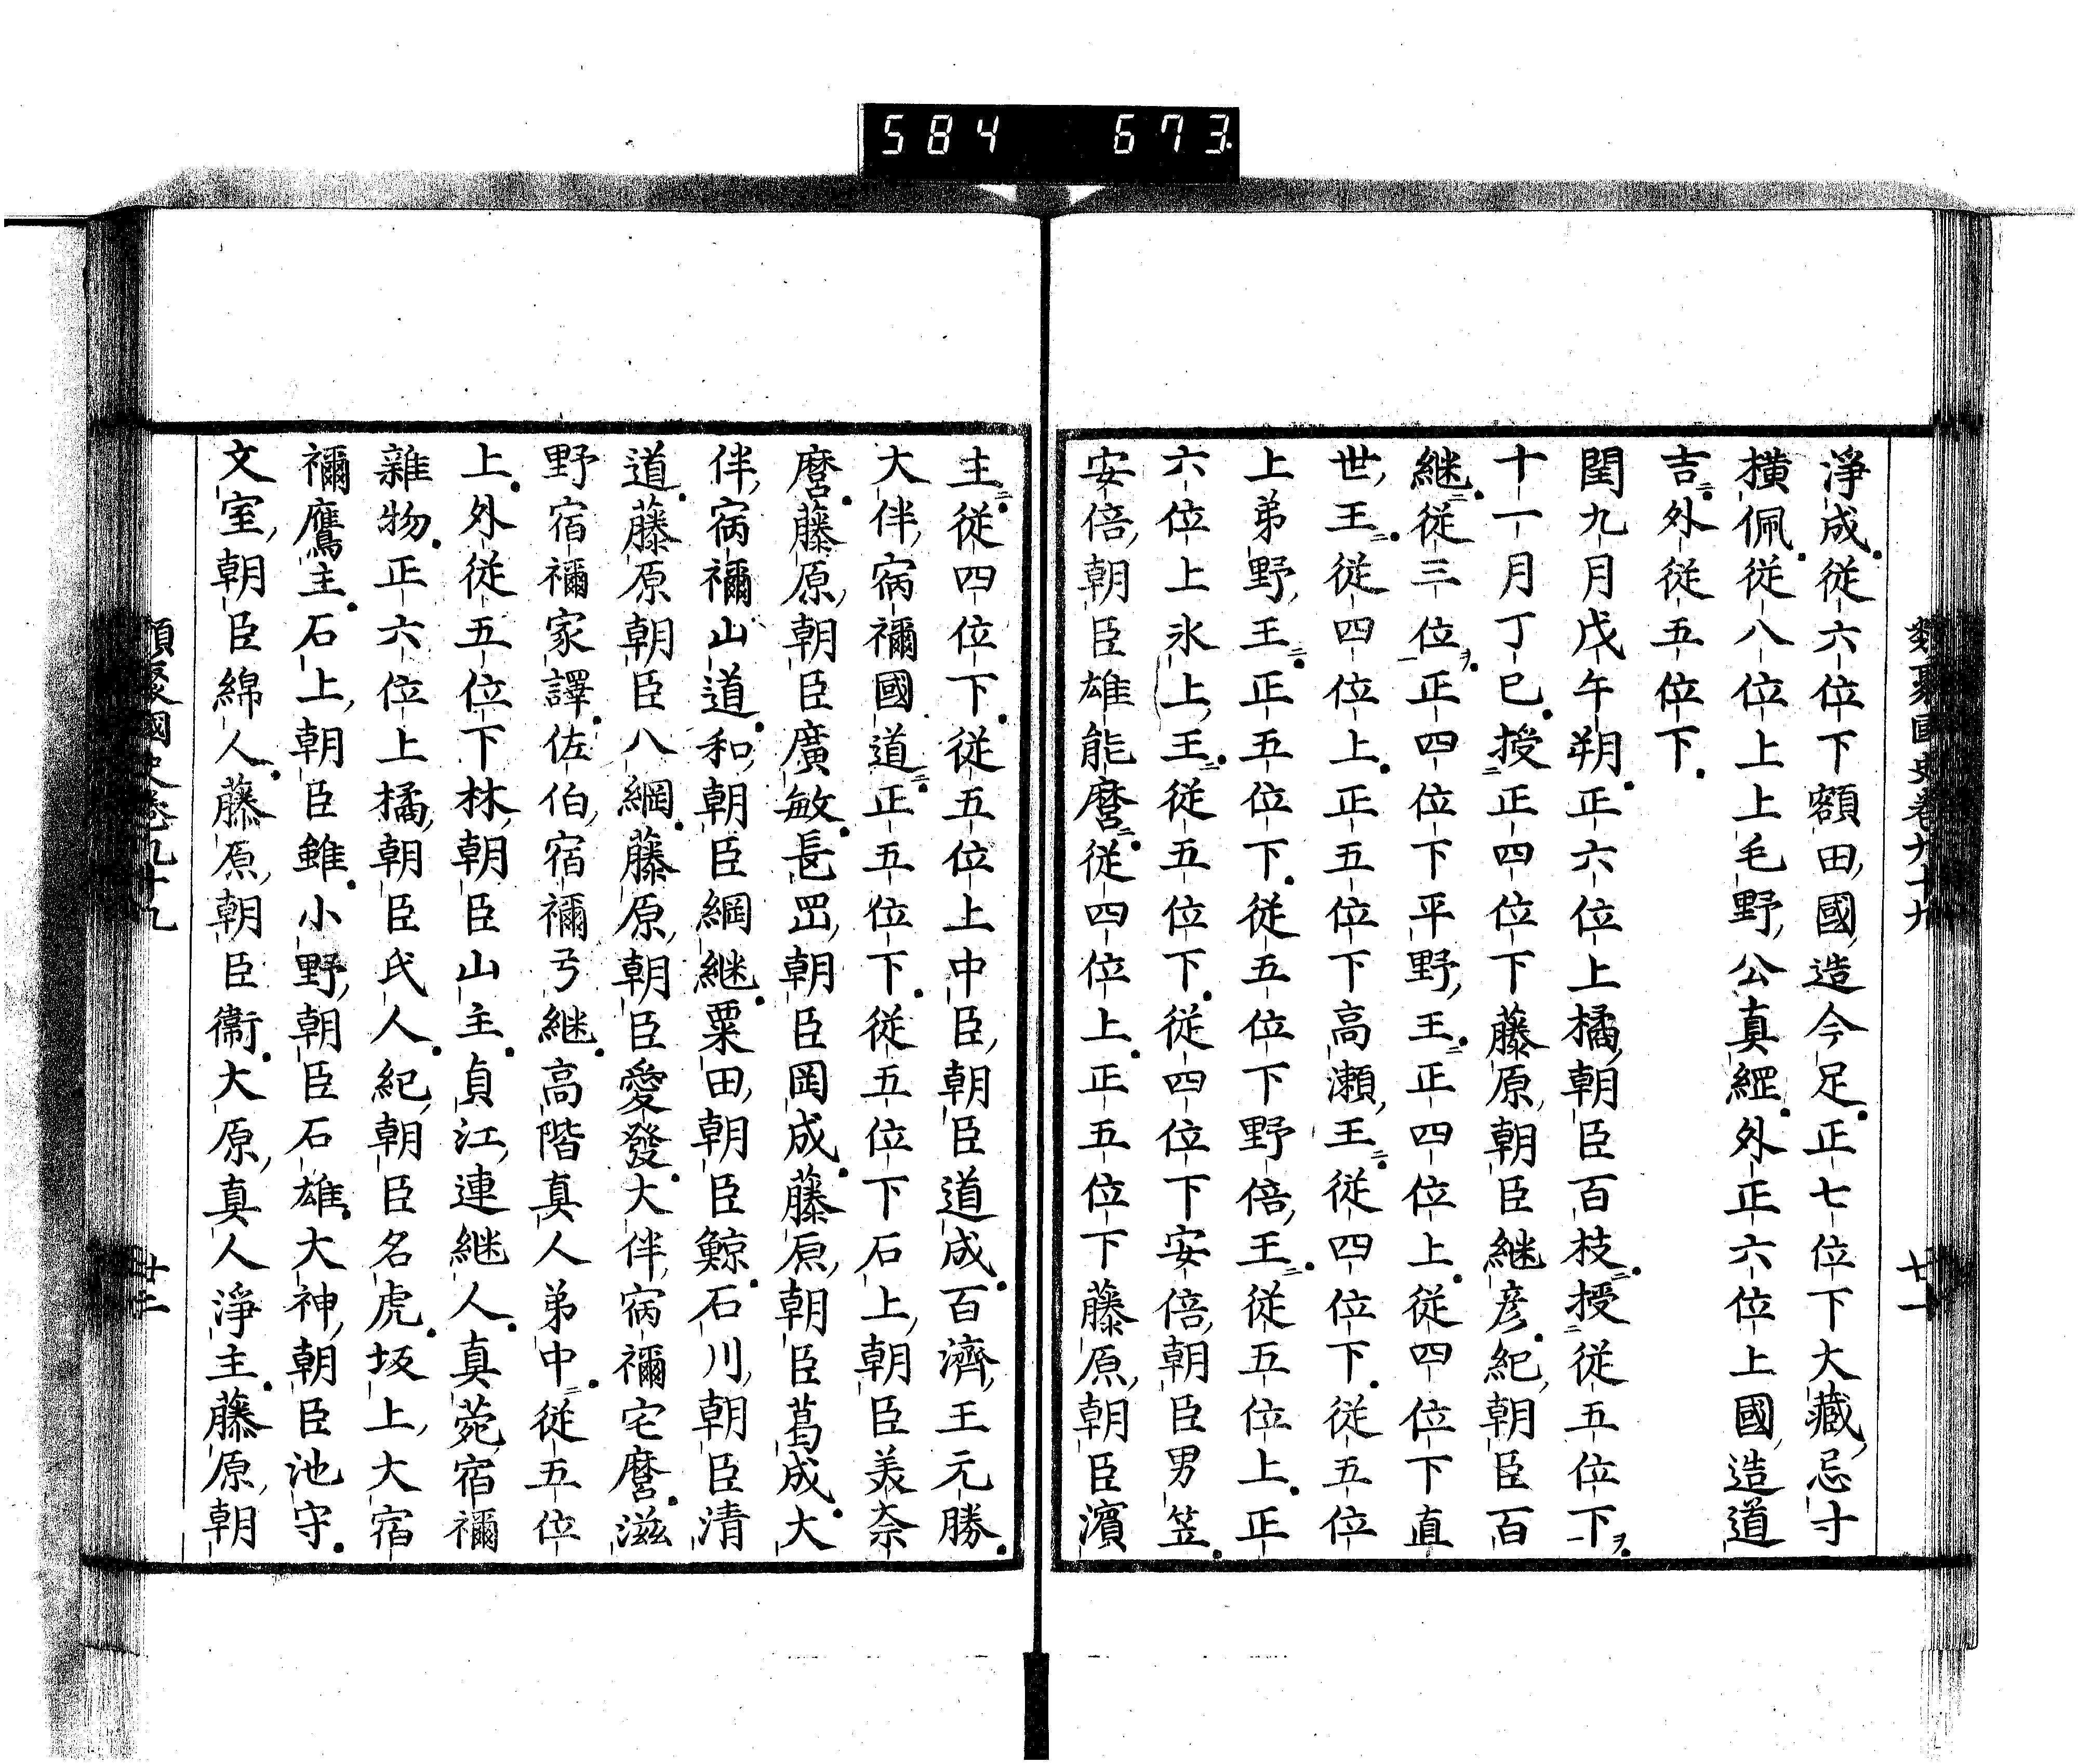 584 673
類聚國史卷九十九
廿一
淨成從六位下額田國造今足正七位下大藏忌寸
横佩從八位上上毛野公真繦外正六位上國造道
吉外從五位下
閏九月戊午朔正六位上橘朝臣百枝授從五位下ヲ
十一月丁巳授正四位下藤原朝臣継彦紀朝臣百
継從三位ヲ正四位下平野王正四位上從四位下直
世王從四位上正五位下高瀬王從四位下從五位
上弟野王正五位下從五位下野倍王從五位上正
六位上氷上王從五位下從四位下安倍朝臣男笠
安倍朝臣雄能麿從四位上正五位下藤原朝臣濱
主從四位下從五位上中臣朝臣道成百濟王元勝
大伴宿禰國道正五位下從五位下石上朝臣美奈
麿藤原朝臣廣敏長岡朝臣岡成藤原朝臣葛成大
伴宿禰山道和朝臣綱継粟田朝臣鯨石川朝臣清
道藤原朝臣八綱藤原朝臣愛發大伴宿禰宅麿滋
野宿禰家譯佐伯宿禰弓継高階真人弟中從五位
上外從五位下林朝臣山主貞江連継人真菀宿禰
雜物正六位上橘朝臣氏人紀朝臣名虎坂上大宿
禰鷹主石上朝臣雖小野朝臣石雄大神朝臣池守
文室朝臣綿人藤原朝臣衞大原真人淨主藤原朝
類聚國史卷九十九
廿二